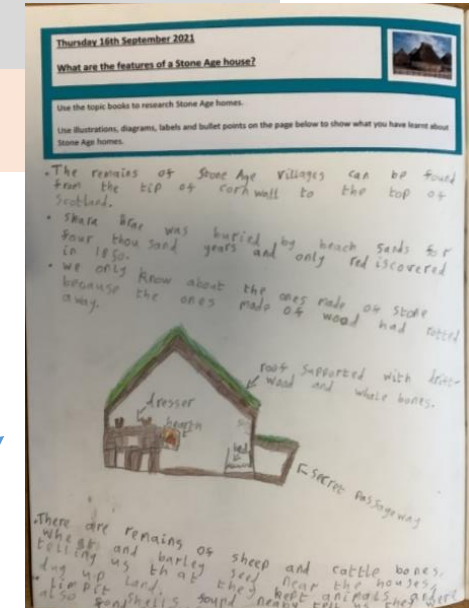 Thursday 16th September 2021
What are the features of a Stone Age house?
Use the topic books to research Stone Age homes.
Use illustrations, diagrams, labels and bullet points on the page below to show what you have learnt about
Stone Age homes.
• The remains of Stone Age villages can be found
from the tip of cornwall to the top of
Scotland.
• Skara Brae was buried by beach sands for
four thousand years and only rediscovered
in 1850.
• we only know about the ones made of stone
because the ones made of wood had rotted
away.
roof supported with drift-
wood and whale bones.
dresser
hearth
bed
secret passageway
• There are remains of sheep and cattle bones,
wheat and barley seed near the houses,
telling us that they kept animals and
dug up land.
• limpit shells found near
also